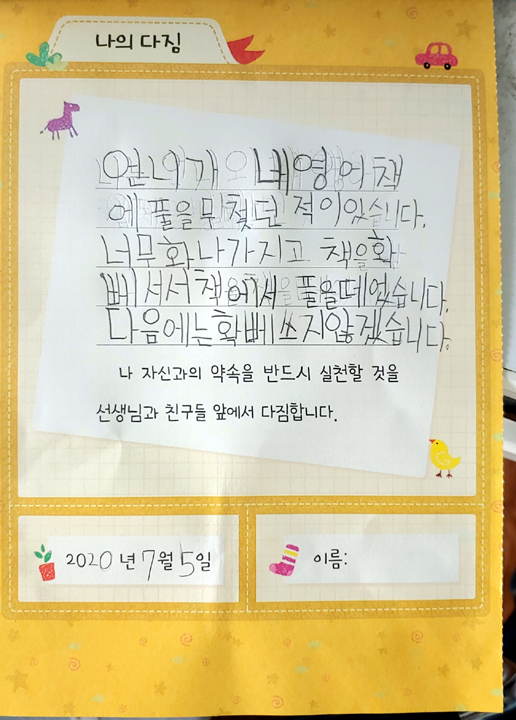 나의 다짐
언니가 내 영어 책
에 풀을 무쳤던 적이있습니다.
너무화나가지고 책을확
뻬서서책에서 풀을떼었습니다.
다음에는확뻬쓰지않겠습니다.
나 자신과의 약속을 반드시 실천할 것을
선생님과 친구들 앞에서 다짐합니다.
2020년 7월 5일
이름: